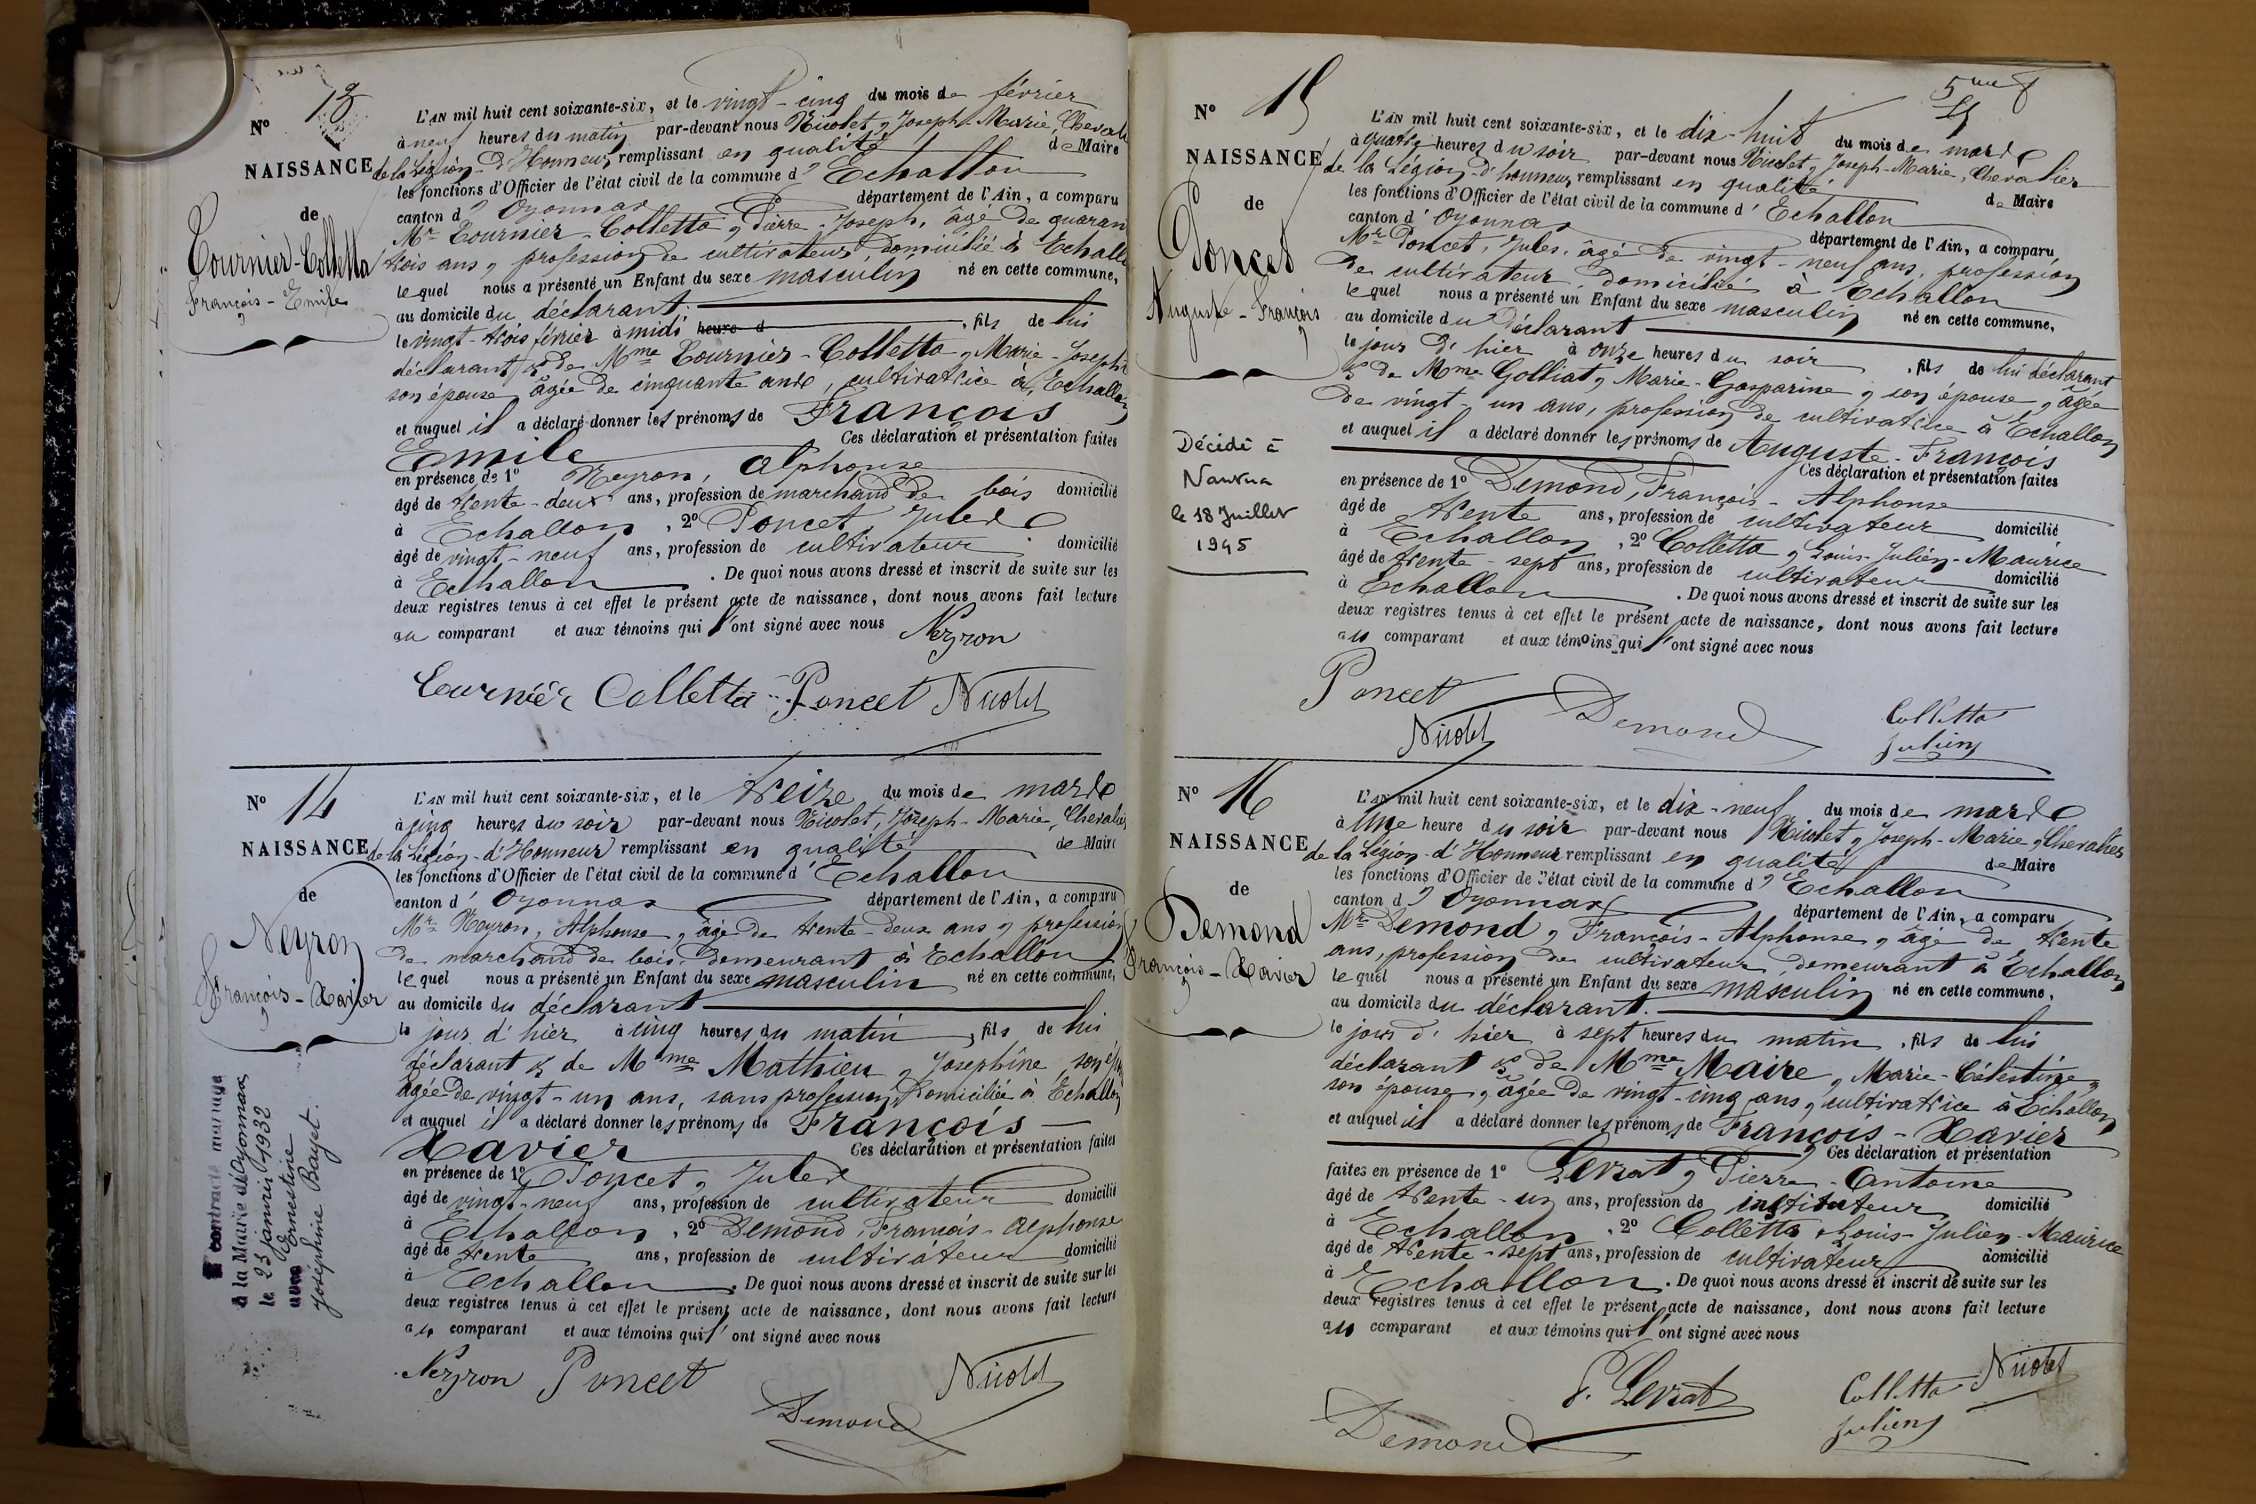 N° 13
NAISSANCE
de
Tournier-Colletta
François-Emile
L'AN mil huit cent soixante-six, et le vingt-cinq du mois de février
à neuf heures du matin par-devant nous Nicolet, Joseph-Marie, Chevalier
de la Légion-d'Honneur remplissant en qualité de Maire
les fonctions d'Officier de l'état civil de la commune d'Echallon
canton d'Oyonnax département de l'Ain, a comparu
Mr Tournier-Colletta, Pierre-Joseph, âgé de quaran
trois ans, profession de cultivateur, domicilié à Echallon
lequel nous a présenté un Enfant du sexe masculin né en cette commune,
au domicile du déclarant.
le vingt-trois février à midi heure d , fils de lui
déclarant & de Mme Tournier-Colletta, Marie-Josephte
son épouse âgée de cinquante ans, cultivatrice à Echallon
et auquel il a déclaré donner les prénoms de François
Emile Ces déclaration et présentation faites
en présence de 1° Neyron, Alphonse
âgé de trente-deux ans, profession de marchand de bois domicilié
à Echallon, 2° Poncet, Jules
âgé de vingt-neuf ans, profession de cultivateur domicilié
à Echallon. De quoi nous avons dressé et inscrit de suite sur les
deux registres tenus à cet effet le présent acte de naissance, dont nous avons fait lecture
au comparant et aux témoins qui l'ont signé avec nous Neyron
Tournier Colletta Poncet Nicolet
N° 14
NAISSANCE
de
Neyron
François-Xavier
a contracté mariage
à la Mairie de Oyonnax
le 23 janvier 1932
avec Ernestine
Joséphine Bayet.
L'AN mil huit cent soixante-six, et le treize du mois de mars
à cinq heures du soir par-devant nous Nicolet, Joseph-Marie, Chevalier
de la Légion-d'Honneur remplissant en qualité de Maire
les fonctions d'Officier de l'état civil de la commune d'Echallon
canton d'Oyonnax département de l'Ain, a comparu
Mr Neyron, Alphonse, âgé de trente-deux ans, profession
de marchand de bois, demeurant à Echallon
lequel nous a présenté un Enfant du sexe masculin né en cette commune,
au domicile du déclarant
le jour d'hier à cinq heures du matin, fils de lui
déclarant & de Mme Mathieu, Josephine, son épouse
âgée de vingt-un ans, sans profession, domiciliée à Echallon
et auquel il a déclaré donner les prénoms de François-
Xavier Ces déclaration et présentation faites
en présence de 1° Poncet, Jules
âgé de vingt-neuf ans, profession de cultivateur domicilié
à Echallon, 2° Demond, François-Alphonse
âgé de trente ans, profession de cultivateur domicilié
à Echallon. De quoi nous avons dressé et inscrit de suite sur les
deux registres tenus à cet effet le présent acte de naissance, dont nous avons fait lecture
au comparant et aux témoins qui l'ont signé avec nous
Neyron Poncet Nicolet
Demond
5me f
N° 15
NAISSANCE
de
Poncet
Auguste-François
Décédé à
Nantua
le 18 Juillet
1945
L'AN mil huit cent soixante-six, et le dix-huit du mois de mars
à quatre heures du soir par-devant nous Nicolet, Joseph-Marie, Chevalier
de la Légion-d'honneur remplissant en qualité de Maire
les fonctions d'Officier de l'état civil de la commune d'Echallon
canton d'Oyonnax département de l'Ain, a comparu
Mr Poncet, Jules, âgé de vingt-neuf ans, profession
de cultivateur, domicilié à Echallon
lequel nous a présenté un Enfant du sexe masculin né en cette commune,
au domicile du déclarant
le jour d'hier à onze heures du soir, fils de lui déclarant
& de Mme Golliat, Marie-Gasparine, son épouse, âgée
de vingt-un ans, profession de cultivatrice à Echallon
et auquel il a déclaré donner les prénoms de Auguste-François
Ces déclaration et présentation faites
en présence de 1° Demond, François-Alphonse
âgé de trente ans, profession de cultivateur domicilié
à Echallon, 2° Colletta, Louis-Julien-Maurice
âgé de trente-sept ans, profession de cultivateur domicilié
à Echallon. De quoi nous avons dressé et inscrit de suite sur les
deux registres tenus à cet effet le présent acte de naissance, dont nous avons fait lecture
au comparant et aux témoins qui l'ont signé avec nous
Poncet Demond Colletta
Nicolet Julien
N° 16
NAISSANCE
de
Demond
François-Xavier
L'AN mil huit cent soixante-six, et le dix-neuf du mois de mars
à une heure du soir par-devant nous Nicolet, Joseph-Marie, Chevalier
de la Légion-d'Honneur remplissant en qualité de Maire
les fonctions d'Officier de l'état civil de la commune d'Echallon
canton d'Oyonnax département de l'Ain, a comparu
Mr Demond, François-Alphonse, âgé de trente
ans, profession de cultivateur, demeurant à Echallon
lequel nous a présenté un Enfant du sexe masculin né en cette commune,
au domicile du déclarant.
le jour d'hier à sept heures du matin, fils de lui
déclarant & de Mme Maire, Marie-Célestine,
son épouse, âgée de vingt-cinq ans, cultivatrice à Echallon
et auquel il a déclaré donner les prénoms de François-Xavier
Ces déclaration et présentation
faites en présence de 1° Levrat, Pierre-Antoine
âgé de trente-un ans, profession de instituteur domicilié
à Echallon, 2° Colletta, Louis-Julien-Maurice
âgé de trente-sept ans, profession de cultivateur domicilié
à Echallon. De quoi nous avons dressé et inscrit de suite sur les
deux registres tenus à cet effet le présent acte de naissance, dont nous avons fait lecture
au comparant et aux témoins qui l'ont signé avec nous
P. Levrat Colletta Nicolet
Demond Julien